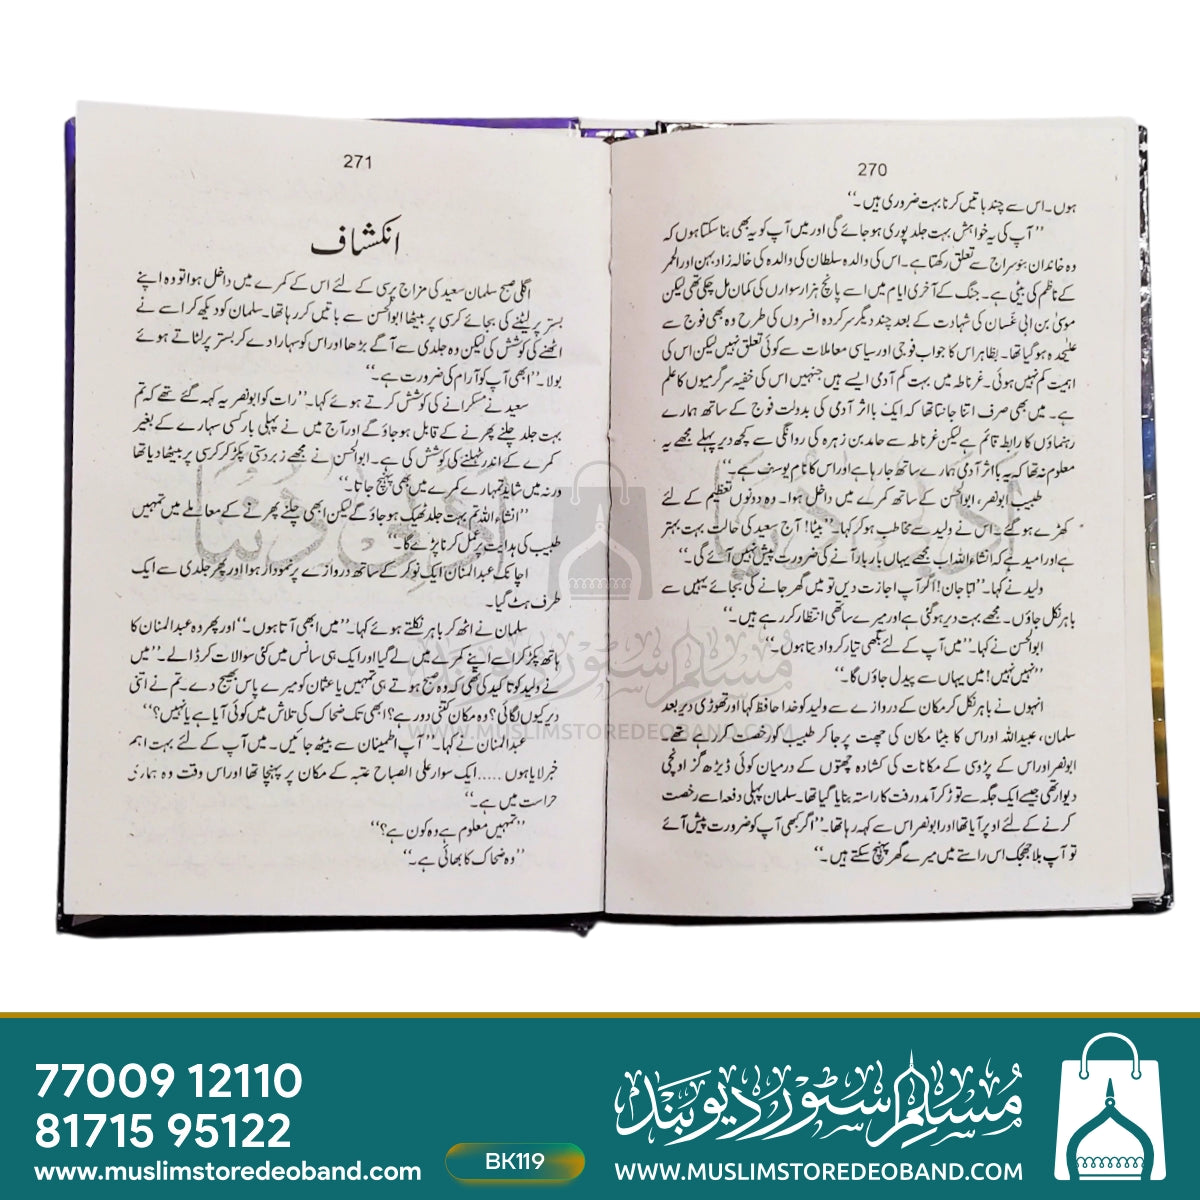 270
ہوں۔ اس سے چند باتیں کرنا بہت ضروری ہیں۔‘‘
’’آپ کی یہ خواہش بہت جلد پوری ہو جائے گی اور میں آپ کو یہ بھی بتا سکتا ہوں کہ
وہ خاندان بنو سراج سے تعلق رکھتا ہے۔ اس کی والدہ سلطان کی والدہ کی خالہ زاد بہن اور الحمر
کے ناظم کی بیٹی ہے۔ جنگ کے آخری ایام میں اسے پانچ ہزار سواروں کی کمان مل چکی تھی لیکن
موسیٰ بن ابی غسان کی شہادت کے بعد چند دیگر سرکردہ افسروں کی طرح وہ بھی فوج سے
علیٰحدہ ہو گیا تھا۔ بظاہر اس کا جواب فوجی اور سیاسی معاملات سے کوئی تعلق نہیں لیکن اس کی
اہمیت کم نہیں ہوئی۔ غرناطہ میں بہت کم آدمی ایسے ہیں جنہیں اس کی خفیہ سرگرمیوں کا علم
ہے۔ میں بھی صرف اتنا جانتا تھا کہ ایک با اثر آدمی کی بدولت فوج کے ساتھ ہمارے
رہنماؤں کا رابطہ قائم ہے لیکن غرناطہ سے حامد بن زہرہ کی روانگی سے کچھ دیر پہلے مجھے یہ
معلوم نہ تھا کہ یہ با اثر آدمی ہمارے ساتھ جا رہا ہے اور اس کا نام یوسف ہے۔‘‘
طبیب ابو نصر، ابوالحسن کے ساتھ کمرے میں داخل ہوا۔ وہ دونوں تعظیم کے لئے
کھڑے ہو گئے۔ اس نے ولید سے مخاطب ہو کر کہا۔ ’’بیٹا! آج سعید کی حالت بہت بہتر
ہے اور امید ہے کہ انشاء اللہ اب مجھے یہاں بار بار آنے کی ضرورت پیش نہیں آئے گی۔‘‘
ولید نے کہا۔ ’’ابا جان! اگر آپ اجازت دیں تو میں گھر جانے کی بجائے یہیں سے
باہر نکل جاؤں۔ مجھے بہت دیر ہو گئی ہے اور میرے ساتھی انتظار کر رہے ہیں۔‘‘
ابوالحسن نے کہا۔ ’’میں آپ کے لئے بگھی تیار کروا دیتا ہوں۔‘‘
’’نہیں نہیں! میں یہاں سے پیدل جاؤں گا۔‘‘
انہوں نے باہر نکل کر مکان کے دروازے سے ولید کو خدا حافظ کہا اور تھوڑی دیر بعد
سلمان، عبید اللہ اور اس کا بیٹا مکان کی چھت پر جا کر طبیب کو رخصت کر رہے تھے۔
ابو نصر اور اس کے پڑوسی کے مکانات کی کشادہ چھتوں کے درمیان کوئی ڈیڑھ گز اونچی
دیوار تھی جسے ایک جگہ سے توڑ کر آمد و رفت کا راستہ بنایا گیا تھا۔ سلمان پہلی دفعہ اسے رخصت
کرنے کے لئے اوپر آیا تھا اور ابو نصر اس سے کہہ رہا تھا۔ ’’اگر کبھی آپ کو ضرورت پیش آئے
تو آپ بلا جھجک اس راستے میں میرے گھر پہنچ سکتے ہیں۔‘‘
271
انکشاف
اگلی صبح سلمان سعید کی مزاج پرسی کے لئے اس کے کمرے میں داخل ہوا تو وہ اپنے
بستر پر لیٹنے کی بجائے کرسی پر بیٹھا ابوالحسن سے باتیں کر رہا تھا۔ سلمان کو دیکھ کر اس نے
اٹھنے کی کوشش کی لیکن وہ جلدی سے آگے بڑھا اور اس کو سہارا دے کر بستر پر لٹاتے ہوئے
بولا۔ ’’ابھی آپ کو آرام کی ضرورت ہے۔‘‘
سعید نے مسکرانے کی کوشش کرتے ہوئے کہا۔ ’’رات کو ابو نصر یہ کہہ گئے تھے کہ تم
بہت جلد چلنے پھرنے کے قابل ہو جاؤ گے اور آج میں نے پہلی بار کسی سہارے کے بغیر
کمرے کے اندر ٹہلنے کی کوشش کی ہے۔ ابوالحسن نے مجھے زبردستی پکڑ کر کرسی پر بیٹھا دیا تھا
ورنہ میں شاید تمہارے کمرے میں بھی پہنچ جاتا۔‘‘
’’انشاء اللہ تم بہت جلد ٹھیک ہو جاؤ گے لیکن ابھی چلنے پھرنے کے معاملے میں تمہیں
طبیب کی ہدایت پر عمل کرنا پڑے گا۔‘‘
اچانک عبدالمنان ایک نوکر کے ساتھ دروازے پر نمودار ہوا اور پھر جلدی سے ایک
طرف ہٹ گیا۔
سلمان نے اٹھ کر باہر نکلتے ہوئے کہا۔ ’’میں ابھی آتا ہوں۔‘‘ اور پھر وہ عبدالمنان کا
ہاتھ پکڑ کر اسے اپنے کمرے میں لے گیا اور ایک ہی سانس میں کئی سوالات کر ڈالے۔ ’’میں
نے ولید کو تاکید کی تھی کہ وہ صبح ہوتے ہی تمہیں یا عثمان کو میرے پاس بھیج دے۔ تم نے اتنی
دیر کیوں لگائی؟ وہ مکان کتنی دور ہے؟ ابھی تک ضحاک کی تلاش میں کوئی آیا ہے یا نہیں؟‘‘
عبدالمنان نے کہا۔ ’’آپ اطمینان سے بیٹھ جائیں۔ میں آپ کے لئے بہت اہم
خبر لایا ہوں ..... ایک سوار علی الصباح عتبہ کے مکان پر پہنچا تھا اور اس وقت وہ ہماری
حراست میں ہے۔‘‘
’’تمہیں معلوم ہے وہ کون ہے؟‘‘
’’وہ ضحاک کا بھائی ہے۔‘‘
ادبی دنیا
ادبی دنیا
مسلم سٹور دیوبند
WWW.MUSLIMSTOREDEOBAND.COM
77009 12110
81715 95122
www.muslimstoredeoband.com
BK119
مسلم سٹور دیوبند
WWW.MUSLIMSTOREDEOBAND.COM